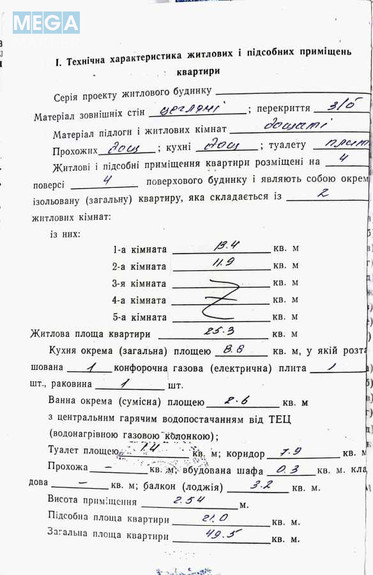 MEGA
I. Технічна характеристика житлових і підсобних приміщень
квартири
Серія проекту житлового будинку
Матеріал зовнішніх стін цегляні ; перекриття з/б
Матеріал підлоги і житлових кімнат дощаті
Прохожих дощ ; кухні дощ ; туалету
Житлові і підсобні приміщення квартири розміщені на 4
поверсі 4 поверхового будинку і являють собою окрем
ізольовану (загальну) квартиру, яка складається із 2
житлових кімнат:
із них:
1-а кімната 13.4 кв. м
2-а кімната 11.9 кв. м
3-я кімната кв. м
4-а кімната кв. м
5-а кімната кв. м
Житлова площа квартири 25.3 кв. м
Кухня окрема (загальна) площею 8.8 кв. м, у якій розта
шована 1 конфорочна газова (електрична) плита 1
шт., раковина 1 шт.
Ванна окрема (сумісна) площею 2.6 кв. м
з центральним гарячим водопостачанням від ТЕЦ
(водонагрівною газовою колонкою);
Туалет площею 1.4 кв. м; коридор 7.9 кв. м
Прохожа – кв. м; вбудована шафа 0.3 кв. м. кла
дова – кв. м; балкон (лоджія) 3.2 кв. м.
Висота приміщення 2.54 м.
Підсобна площа квартири 21.0 кв. м
Загальна площа квартири 49.5 кв. м